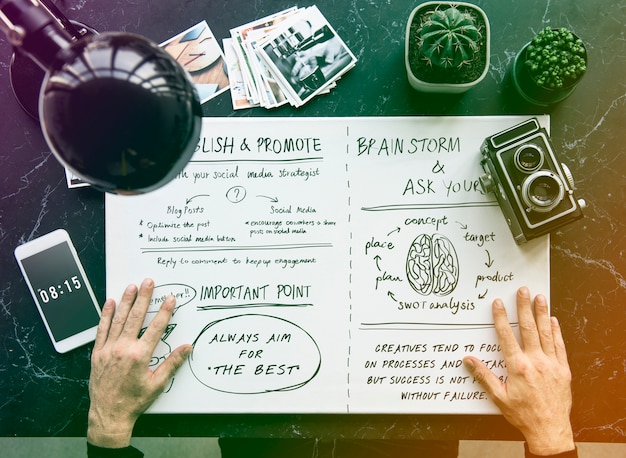 08:15
& PROMOTE
your social media strategist
?
Blog Posts
Social Media
* Optimise the post
* Include social media button
* encourage coworkers to share
posts on social media
Reply to comments to keep up engagement
IMPORTANT POINT
ALWAYS AIM
FOR
"THE BEST"
BRAINSTORM
&
ASK
concept
target
product
SWOT analysis
plan
place
CREATIVES TEND TO
ON PROCESSES AND
BUT SUCCESS IS NOT
WITHOUT FAILURE.